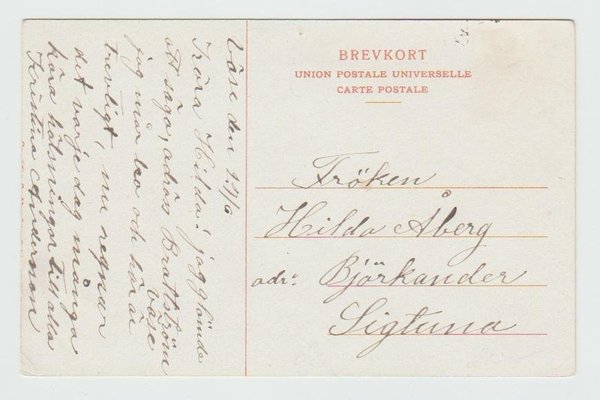 Väse den 17/6
Kära Hilda! jag glömde
att säga, adräs Brattström
Väse
jag mår bra och här är
trevligt, nu regnar
det varje dag många
kära hälsningar till alla
Kristina Andersson
BREVKORT
UNION POSTALE UNIVERSELLE
CARTE POSTALE
Fröken
Hilda Åberg
adr. Björkander
Sigtuna